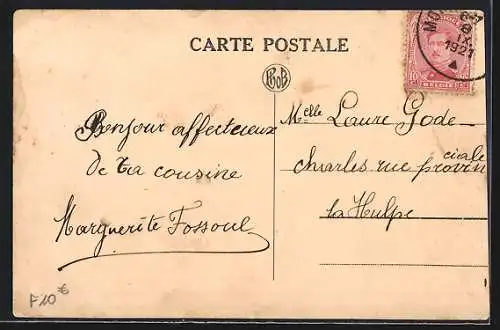 CARTE POSTALE
PBOB
Bonjour affectueux
de ta cousine
Marguerite Fossoul
Melle Laure Gode-
charles rue provin
ciale
la Hulpe
1921
10
F10€